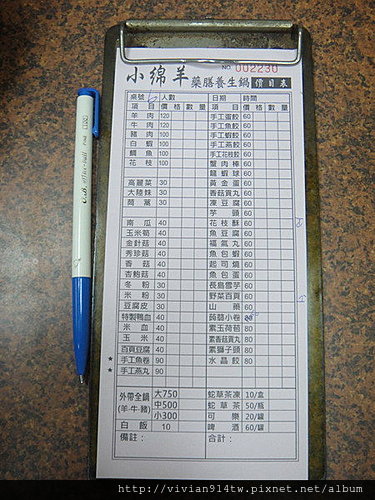 NO. 002230
小綿羊 藥膳養生鍋 價目表
桌號 人數 日期 時間
項目 價格 數量 項目 價格 數量
羊肉 120 手工蛋餃 60
牛肉 120 手工魚餃 60
豬肉 100 手工蝦餃 60
白蝦 100 手工燕餃 60
鯛魚 100 手工花枝餃 60
花枝 100 蟹肉棒 60
龍蝦球 60
高麗菜 30 黃金蛋 60
大陸妹 30 香菇貢丸 60
茼蒿 30 凍豆腐 60
芋頭 60
南瓜 40 花枝酥 60
玉米筍 40 魚豆腐 60
金針菇 40 福氣丸 60
秀珍菇 40 魚包蝦 60
香菇 40 起司燒 60
杏鮑菇 40 魚包蛋 60
冬粉 30 長島雪芋 60
米粉 30 野菜百頁 60
豆腐皮 30 山藥 60
特製鴨血 40 蒟蒻小卷 80
米血 40 素玉荷苞 80
玉米 40 素香菇貢丸 80
百頁豆腐 40 素獅子頭 80
★ 手工魚卷 90 水晶餃 80
★ 手工燕丸 90
外帶全鍋 (羊.牛.豬) 大750 蛇草茶凍 10/盒
中500 蛇草茶 50/瓶
小300 可樂 20/罐
白飯 10 啤酒 60/罐
備註： 合計：
O.B. 200A
http://vivian914tw.pixnet.net/album